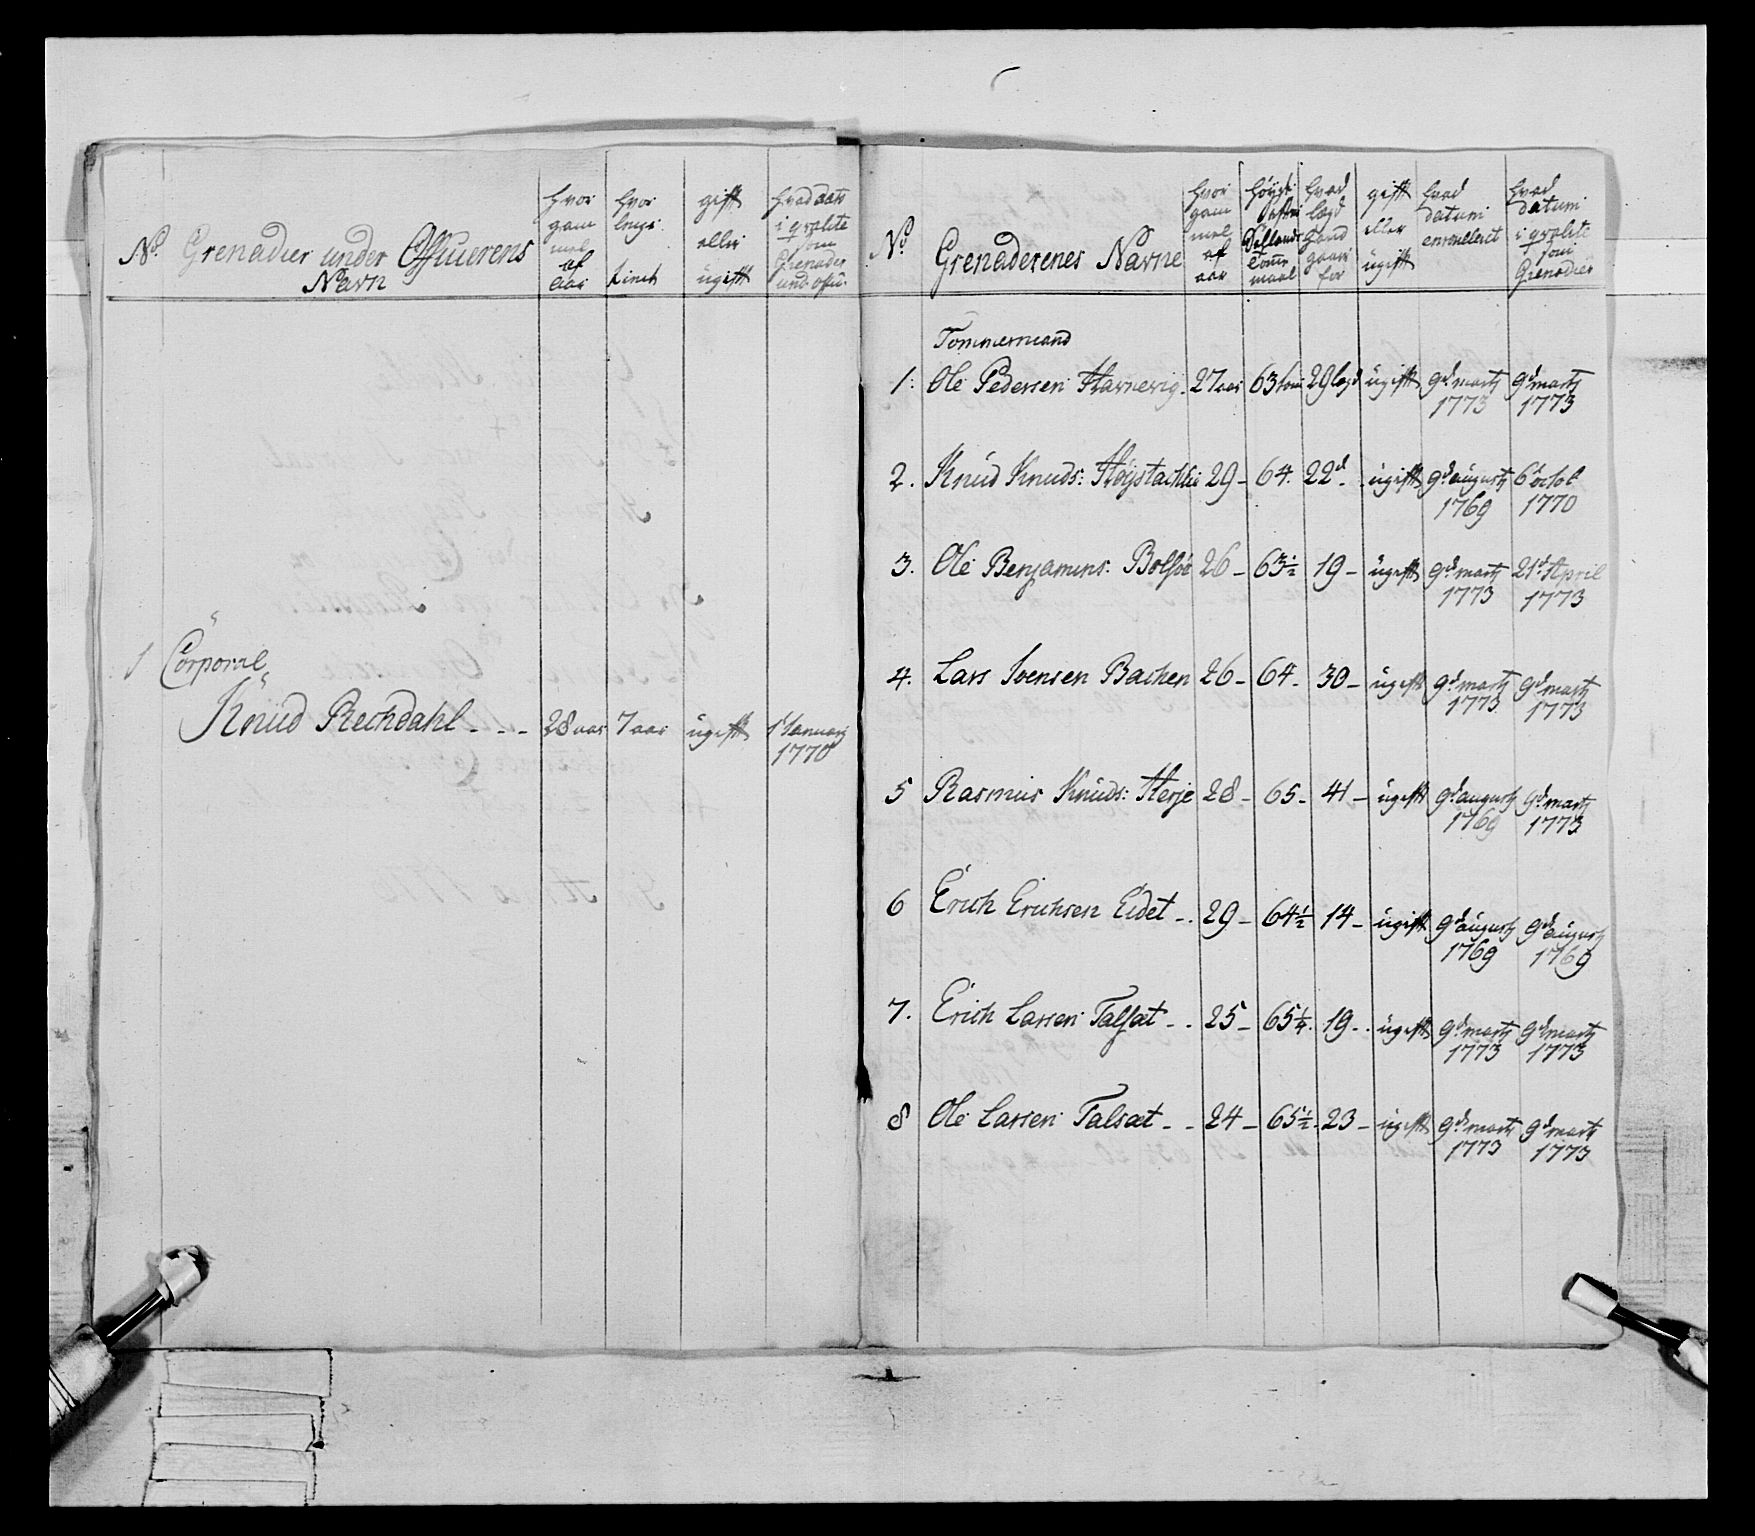 No. Grenadier under Officerens Navn
hvor gammel af aar
hvor lenge tient
gift eller ugift
hvad datu i qvalite som Grenader und: offic:
1 Corporal
Knud Rechdahl - - - 28 aar 7 aar ugift 1 Januarj 1770
No Grenaderenes Navne
hvor gam mel af aar
høyde Tomme maal
hvad lægd hand gaar for
gift eller ugift
hvad datum enroullerit
hvad datum i qvalite som Grenadier
Tommermand
1. Ole Pedersen Harnevig. 27 aar 63 tom 29 lægd ugift 9d marts 1773 9d marts 1773
2. Knud Knuds: 29 - 64. 22d - ugift 9d augusti 1769 6 octob 1770
3. Ole Benjamins: Bolsøe 26 - 63½ 19 - ugift 9d marts 1773 21d April 1773
4. Lars Ivensen Bachen 26 - 64 - 30 - ugift 9d marts 1773 9d marts 1773
5 Rasmus Knuds: Herje 28 - 65 - 41 - ugift 9d augusti 1769 9d marts 1773
6 Erich Erichsen Eidet - . 29 - 64½ 14 - ugift 9d augusti 1769 9d augusti 1769
7. Erich Larsen Talsæt - . 25 - 65¼ 19 - . ugift 9d marts 1773 9d marts 1773
8 Ole Larsen Talsæt - - 24 - 65½ 23 - ugift 9d marts 1773 9d marts 1773